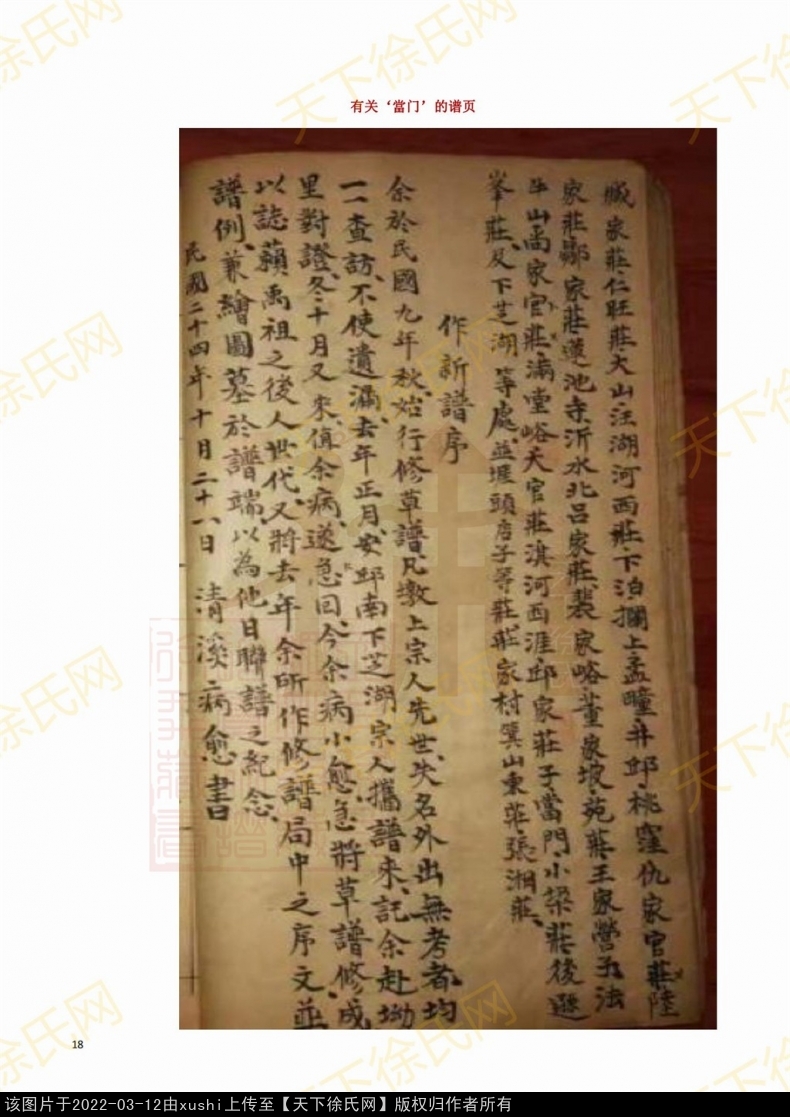 有关‘當门’的谱页
臧家莊仁旺莊大山汪湖河西莊下泊擱上孟疃井邱桃窪仇家官莊陸
家莊鄒家莊蓮池寺沂水北呂家莊裴家峪董家坡苑莊王家營子法
山禹家官莊滿堂峪天官莊淇河西涯邱家莊子當門小梁莊後
峯莊及下芝湖等處並埠頭店子等莊莊家村箕山東莊張湘莊
作新譜序
余於民國九年秋始行修草譜凡墩上宗人先世失名外出無考者均
一一查訪不使遺漏去年正月安邱南下芝湖宗人攜譜來記余赴坳
里對證冬十月又來值余病遂急回今余病小愈急將草譜修成
以誌蘋禹祖之後人世代又將去年余所作修譜局中之序文並
譜例兼繪圖墓於譜端以為他日聯譜之紀念
民國二十四年十月二十八日 清溪病愈書
天下徐氏网
18
该图片于2022-03-12由xushi上传至【天下徐氏网】版权归作者所有